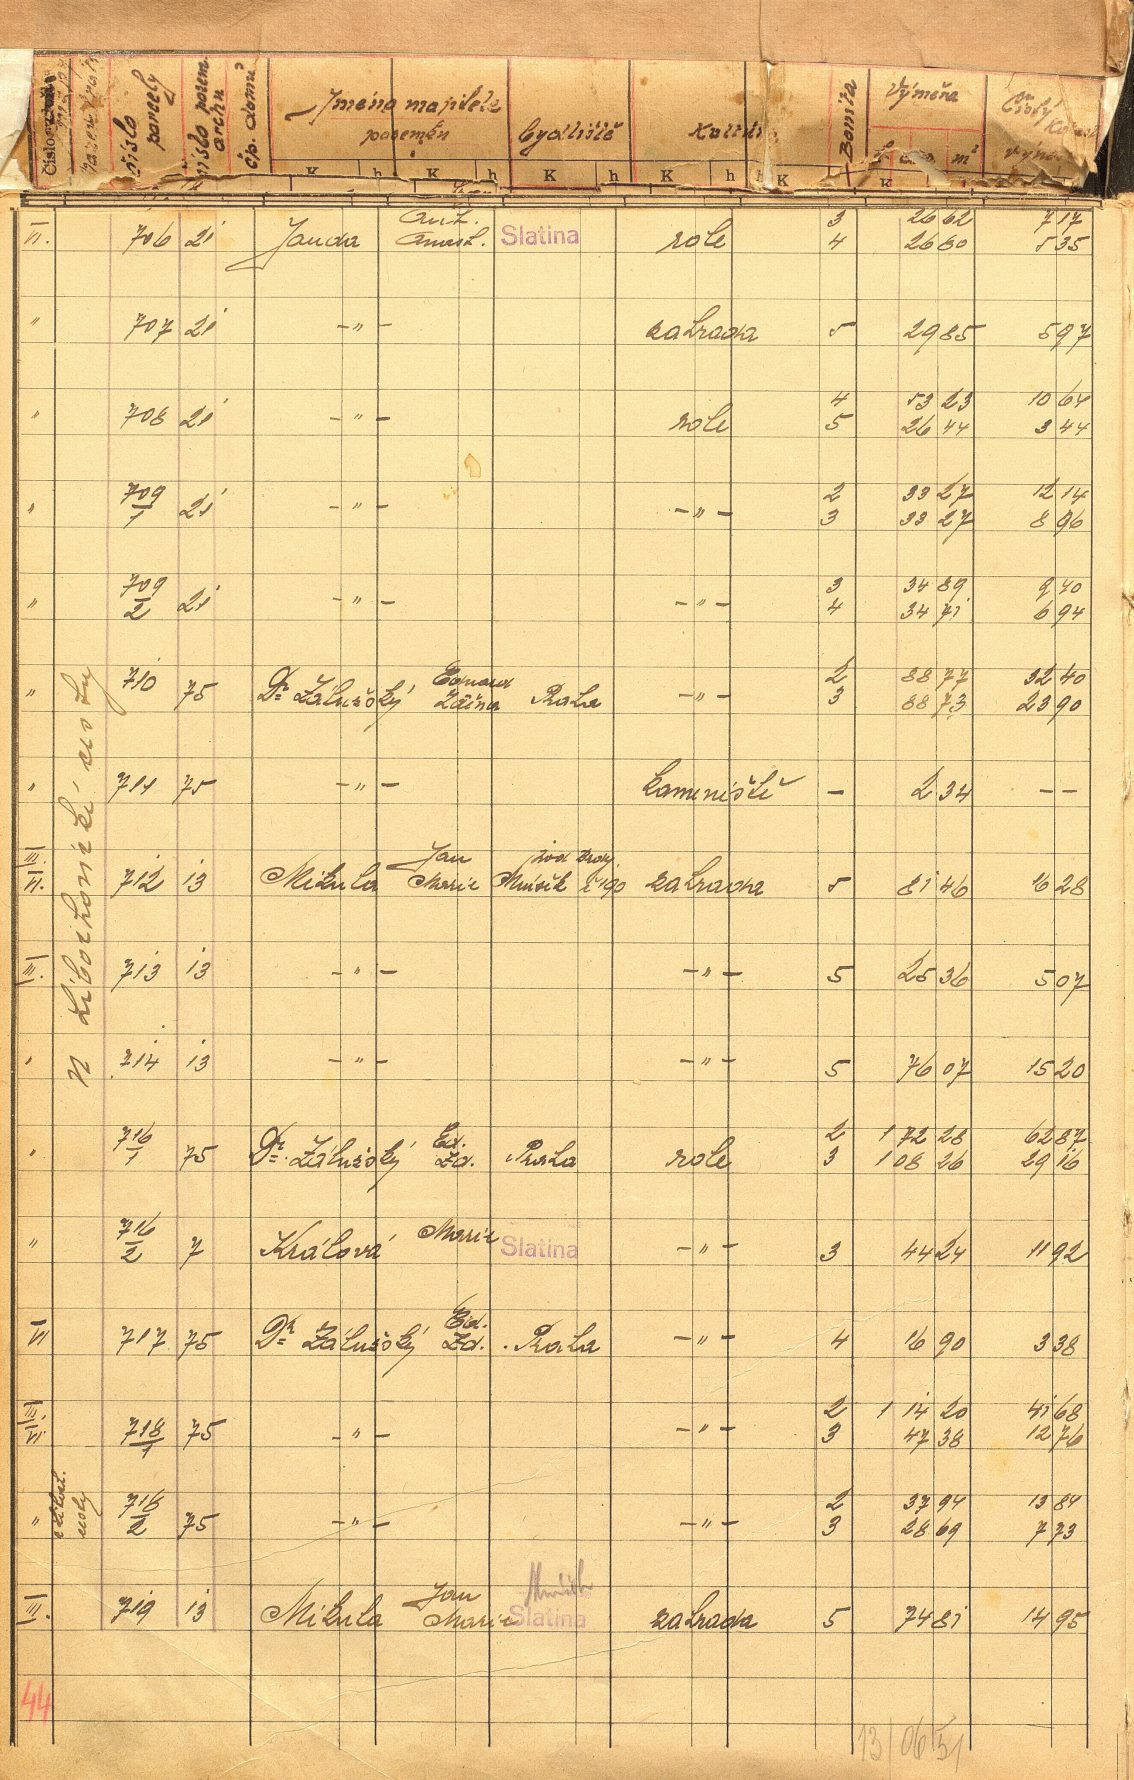 Číslo
název trati
číslo parcely
číslo pozem. archu
čp. domu
Jméno majitele pozemku
bydliště
Kultura
Bonita
Výměra
Čistý Kat. výnos
h a m²
K h K h K h K h h K K
VI. 706 21 Janda Ant. Anast. Slatina role 3 26 62 7 17
4 26 80 5 35
" 707 21 -"- zahrada 5 29 85 5 97
" 708 21 -"- role 4 53 23 10 64
5 26 44 3 44
" 709/1 21 -"- -"- 2 33 27 12 14
3 33 27 8 96
" 709/2 21 -"- -"- 3 34 89 9 40
4 34 71 6 94
" 710 75 Dr Zálužský Eduard Zdína Praha -"- 2 88 77 32 40
3 88 73 23 90
" 711 75 -"- kameniště - 2 34 --
III. VI. 712 13 Mikula Jan Marie zahrada 5 81 46 16 28
III. 713 13 -"- -"- 5 25 36 5 07
" 714 13 -"- -"- 5 76 07 15 20
" 716/1 75 Dr. Zálužský Ed. Zd. Praha role 2 1 72 28 62 87
3 1 08 26 29 16
" 716/2 7 Králová Marie Slatina -"- 3 44 24 11 92
VI 717 75 Dr Zálužský Ed. Zd. Praha -"- 4 16 90 3 38
III. VI. 718/1 75 -"- -"- 2 1 14 20 41 68
3 47 38 12 76
" 718/2 75 -"- -"- 2 37 94 13 84
3 28 69 7 73
III. 719 13 Mikula Jan Marie Slatina zahrada 5 74 81 14 95
44
13/06/51